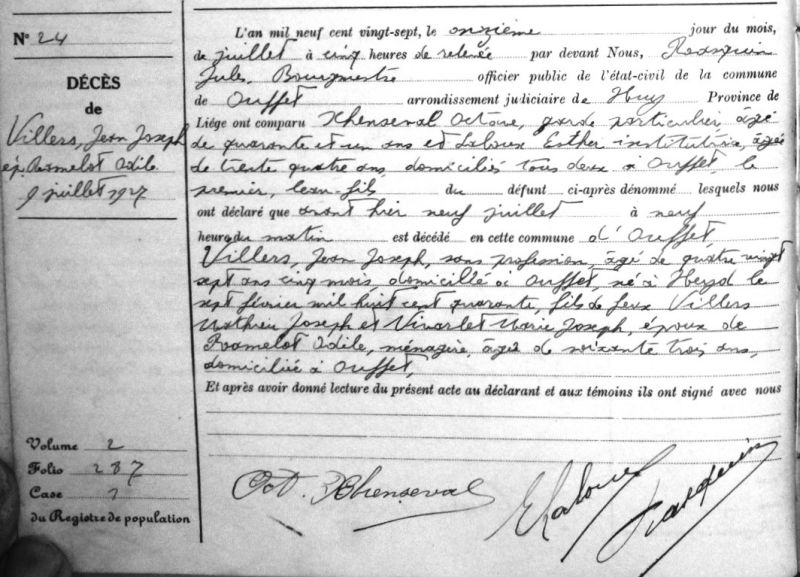 N° 24
DÉCÈS
de
Villers, Jean Joseph
ép. Ramelot Odile
9 juillet 1927
Volume 2
Folio 287
Case
du Registre de population
L'an mil neuf cent vingt-sept, le onzième jour du mois,
de juillet à cinq heures de relevée par devant Nous,
Jules Bourgmestre officier public de l'état-civil de la commune
de Ouffet arrondissement judiciaire de Huy Province de
Liége ont comparu Xhenseval Octave, garde particulier, âgé
de quarante et un ans et Laloux Esther institutrice, âgée
de trente quatre ans, domiciliés tous deux à Ouffet, le
premier, beau-fils du défunt ci-après dénommé lesquels nous
ont déclaré que avant hier neuf juillet à neuf
heures du matin est décédé en cette commune d'Ouffet,
Villers, Jean Joseph, sans profession, âgé de quatre vingt
sept ans cinq mois, domicilié à Ouffet, né à Heyd le
sept février mil huit cent quarante, fils de feux Villers
Mathieu Joseph et Vivarlet Marie Joseph, époux de
Ramelot Odile, ménagère, âgée de soixante trois ans,
domiciliée à Ouffet,
Et après avoir donné lecture du présent acte au déclarant et aux témoins ils ont signé avec nous
Oct. Xhenseval
E Laloux